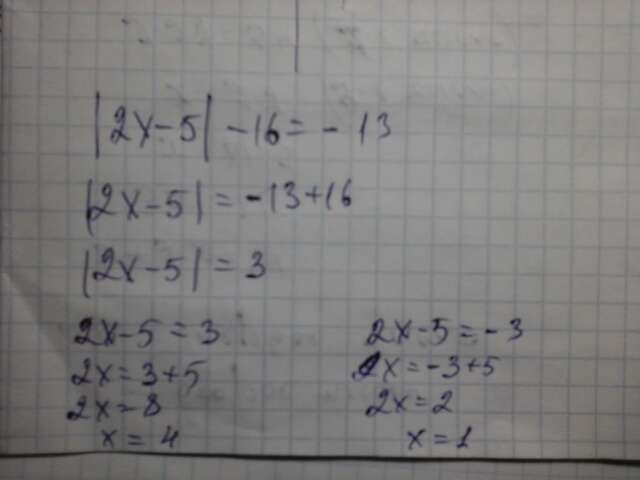 |2x-5| -16= -13
|2x-5| = -13+16
|2x-5| = 3
2x-5 = 3
2x= 3+5
2x=8
x = 4
2x-5=-3
2x=-3+5
2x=2
x=1